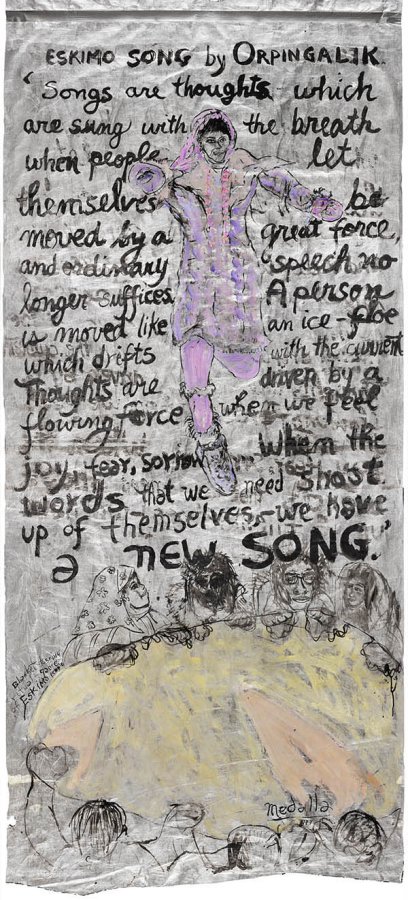 ESKIMO SONG by ORPINGALIK.
'Songs are thoughts which
are sung with the breath
when people let
themselves be
moved by a great force,
and ordinary speech no
longer suffices. A person
is moved like an ice-floe
which drifts with the current
Thoughts are driven by a
flowing force when we feel
joy, fear, sorrow When the
words that we need shoot
up of themselves - we have
a new SONG."
ESKIMO
Medalla